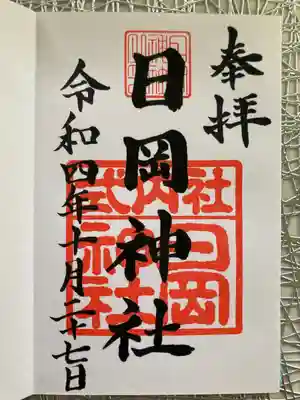 奉拝
日岡神社
式内社
日岡
神社
令和四年十月二十七日